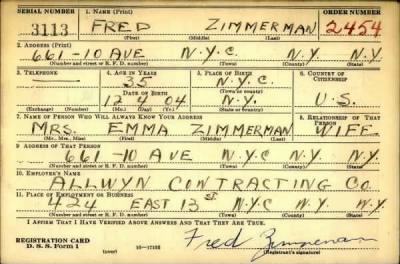 SERIAL NUMBER 1. NAME (Print) ORDER NUMBER
3113 FRED ZIMMERMAN 2454
(First) (Middle) (Last)
2. ADDRESS (Print)
661-10 AVE N.Y.C. N.Y. N.Y.
(Number and street or R. F. D. number) (Town) (County) (State)
3. TELEPHONE 4. AGE IN YEARS 5. PLACE OF BIRTH 6. COUNTRY OF CITIZENSHIP
35 N.Y.C.
DATE OF BIRTH (Town or county)
12 9 04 N.Y. U.S.
(Exchange) (Number) (Mo.) (Day) (Yr.) (State or country)
7. NAME OF PERSON WHO WILL ALWAYS KNOW YOUR ADDRESS 8. RELATIONSHIP OF THAT PERSON
MRS. EMMA ZIMMERMAN WIFE
(Mr., Mrs., Miss) (First) (Middle) (Last)
9. ADDRESS OF THAT PERSON
661-10 AVE N.Y.C N.Y. N.Y.
(Number and street or R. F. D. number) (Town) (County) (State)
10. EMPLOYER'S NAME
ALLWYN CONTRACTING Co.
11. PLACE OF EMPLOYMENT OR BUSINESS
424 EAST 13 ST. N.Y.C N.Y. N.Y.
(Number and street or R. F. D. number) (Town) (County) (State)
I AFFIRM THAT I HAVE VERIFIED ABOVE ANSWERS AND THAT THEY ARE TRUE.
REGISTRATION CARD
D. S. S. Form 1 (over) Fred Zimmerman
(Registrant's signature)